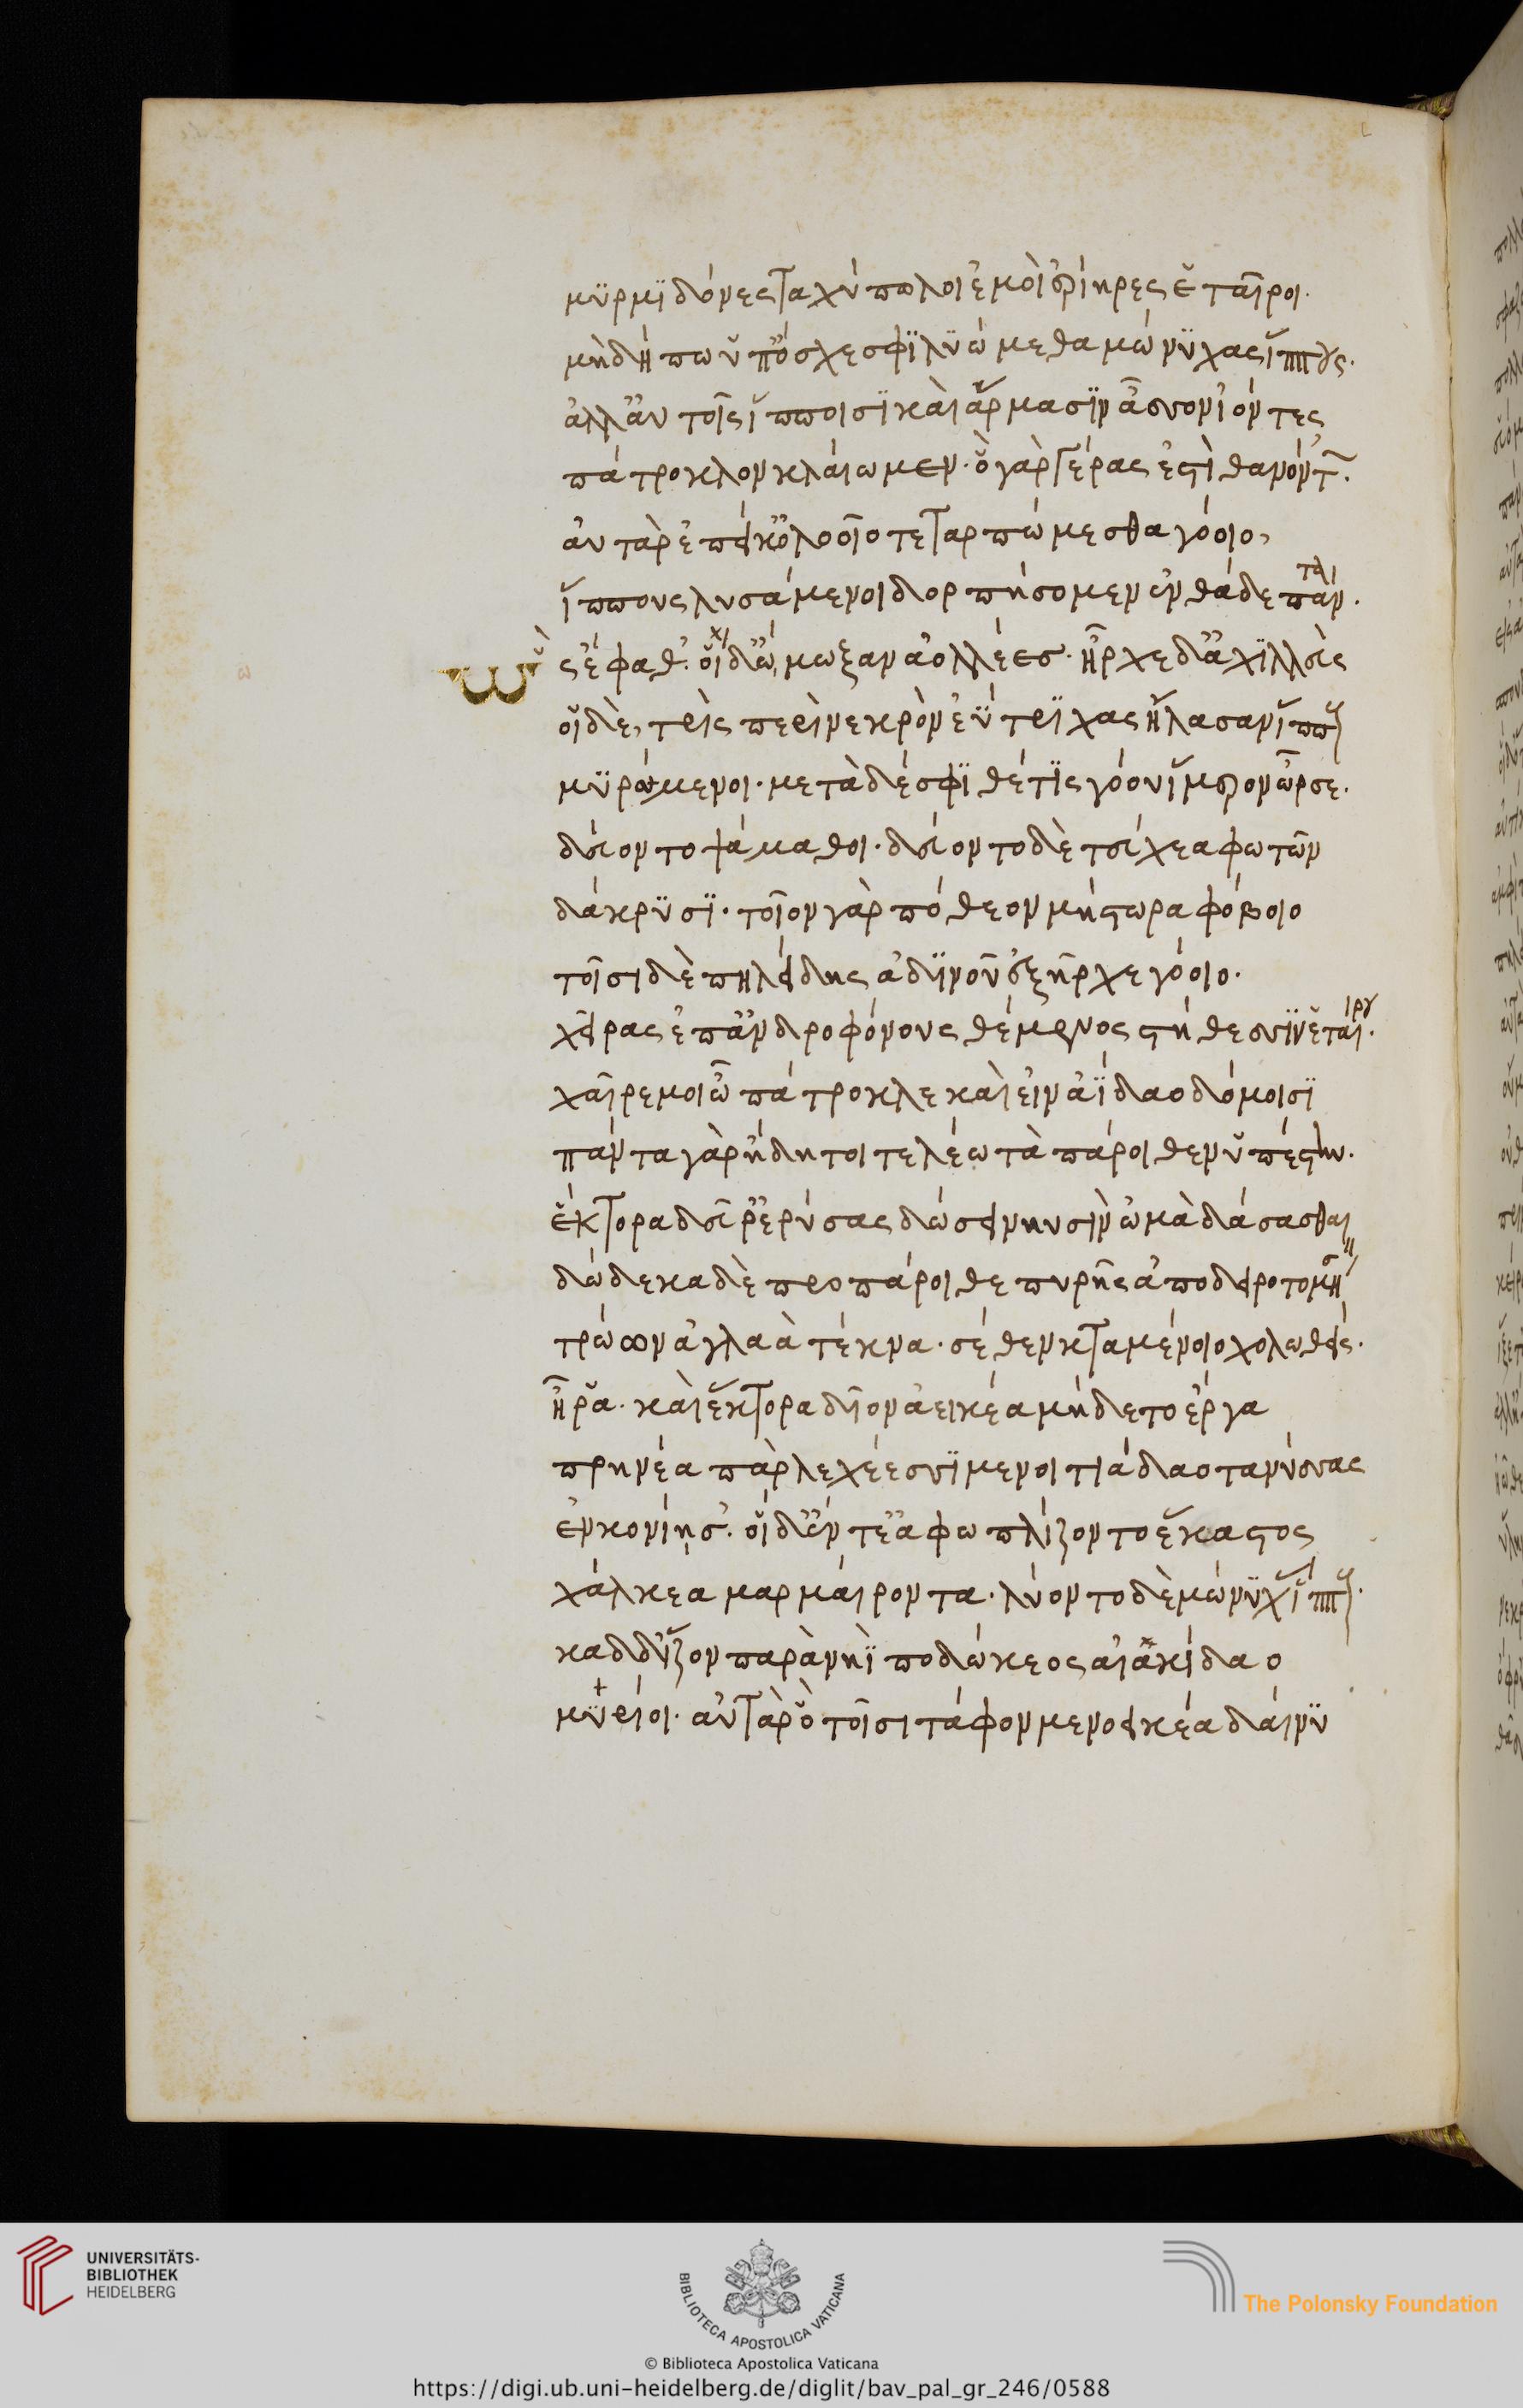 μϋρμϊδόνες ταχύπωλοι ἐμοὶ ἐρίηρες ἑταῖροι.
μὴ δή πω ὑπ' ὄχεσφϊ λϋώμεθα μώνϋχας ἵππους.
ἀλλ' αὐτοῖς ἵπποισϊ καὶ ἅρμασϊν ἆσσον ἰόντες
πάτροκλον κλαίωμεν. ὃ γὰρ γέρας ἐστὶ θανόντ.
αὐτὰρ ἐπεί κ' ὀλοοῖο τεταρπώμεσθα γόοιο,
ἵππους λυσάμενοι δορπήσομεν ἐνθάδε πάντ.
ὣς ἔφαθ'. οἳ δ' ᾤμωξαν ἀολλέες. ἦρχε δ' ἀχϊλλεὺς
οἱ δὲ, τρὶς περὶ νεκρὸν ἐΰτρϊχας ἤλασαν ἵππ
μϋρόμενοι. μετὰ δέ σφϊ θέτϊς γόου ἵμερον ὦρσε.
δεύοντο ψάμαθοι. δεύοντο δὲ τεύχεα φωτῶν
δάκρϋσϊ. τοῖον γὰρ πόθεον μήστωρα φόβοιο
τοῖσι δὲ πηλείδης ἀδϊνοῦ ἐξῆρχε γόοιο.
χεῖρας ἐπ' ἀνδροφόνους θέμενος στήθεσσϊν ἑταίρου.
χαῖρέ μοι ὦ πάτροκλε καὶ εἰν ἀΐδαο δόμοισϊ
πάντα γὰρ ἤδη τοι τελέω τὰ πάροιθεν ὑπέστην.
ἕκτορα δεῦρ' ἐρύσας δώσειν κυσὶν ὠμὰ δάσασθαι
δώδεκα δὲ προπάροιθε πυρῆς ἀποδειροτομή
τρώων ἀγλαὰ τέκνα. σέθεν κταμένοιο χολωθείς.
ἦ ῥα. καὶ ἕκτορα δῖον ἀεικέα μήδετο ἔργα
πρηνέα πὰρ λεχέεσσϊ μενοιτιάδαο τανύσσας
ἐν κονίῃς. οἱ δ' ἔντε' ἀφωπλίζοντο ἕκαστος
χάλκεα μαρμαίροντα. λύον δὲ μώνϋχ ἵππ.
καδδ' ἷζον παρὰ νηῒ ποδώκεος αἰακίδαο
μϋρίοι. αὐτὰρ ὃ τοῖσι τάφον μενοεικέα δαίνϋ
UNIVERSITÄTS-
BIBLIOTHEK
HEIDELBERG
BIBLIOTECA APOSTOLICA VATICANA
The Polonsky Foundation
© Biblioteca Apostolica Vaticana
https://digi.ub.uni-heidelberg.de/diglit/bav_pal_gr_246/0588